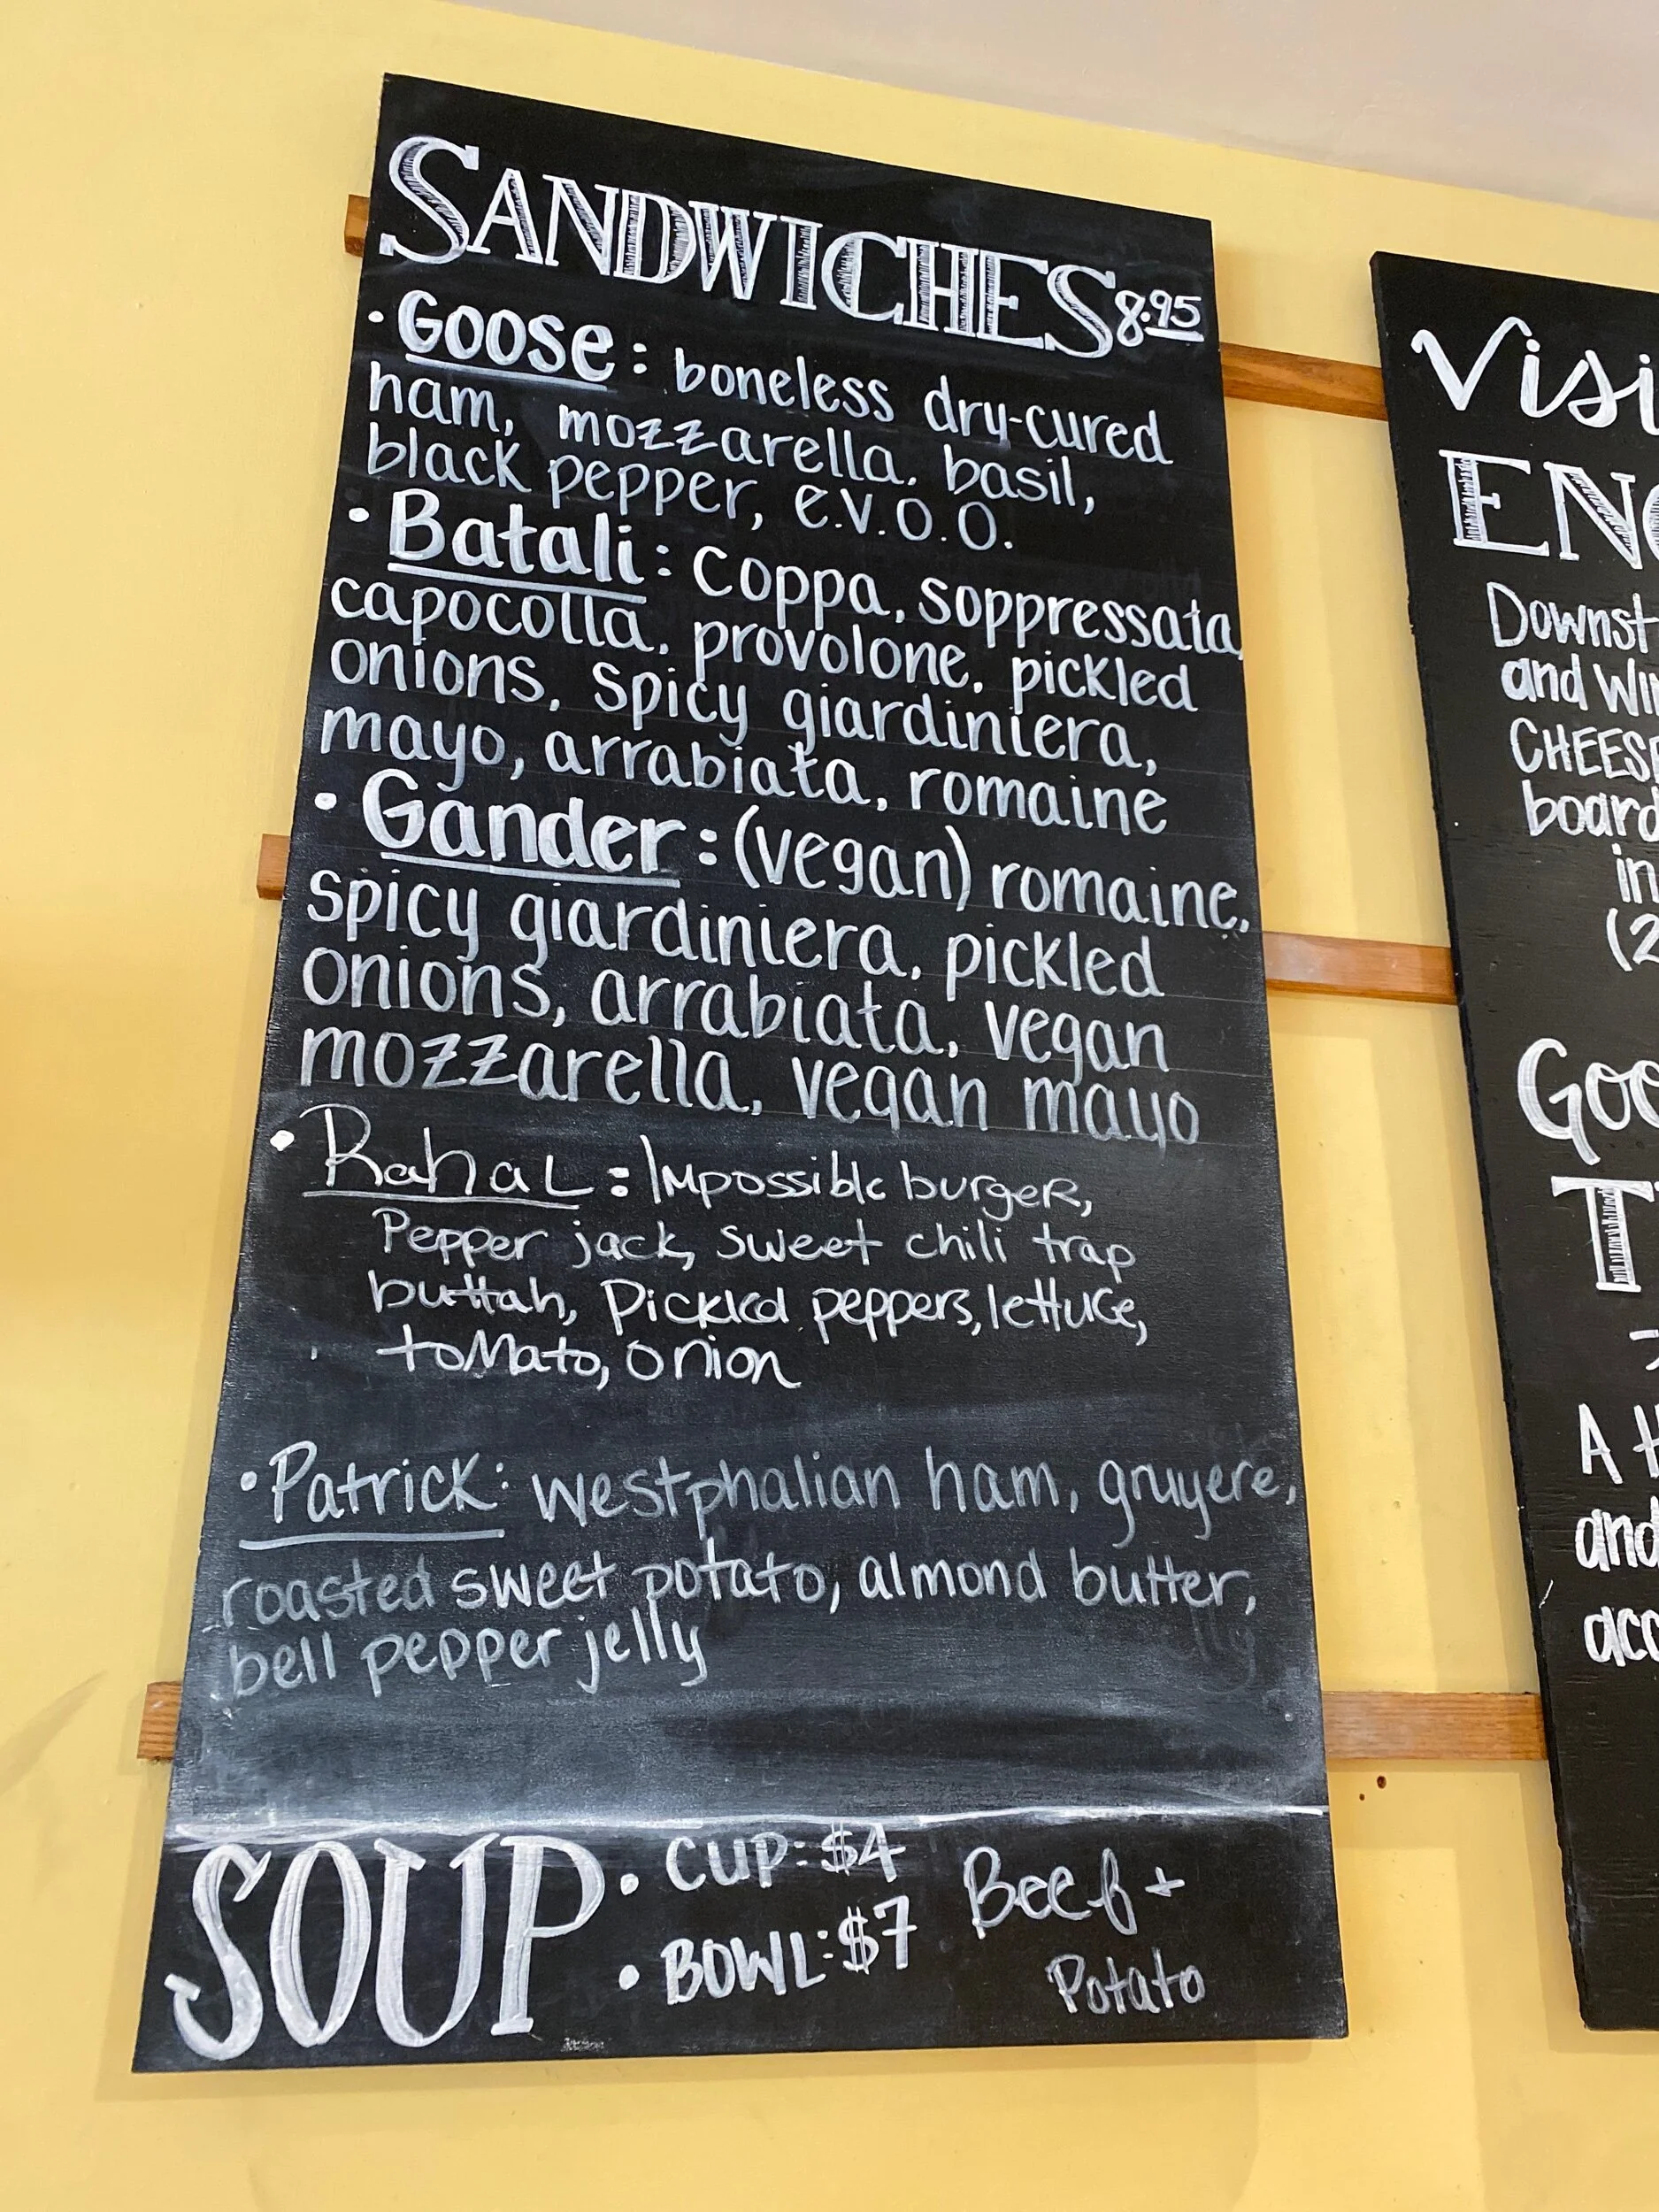 SANDWICHES 8.95
• Goose: boneless dry-cured
ham, mozzarella, basil,
black pepper, e.v.o.o.
• Batali: coppa, soppressata,
capocolla, provolone, pickled
onions, spicy giardiniera,
mayo, arrabiata, romaine
• Gander: (vegan) romaine,
spicy giardiniera, pickled
onions, arrabiata, vegan
mozzarella, vegan mayo
• Rahal: Impossible burger,
Pepper jack, sweet chili trap
buttah, Pickled peppers, lettuce,
tomato, onion
• Patrick: westphalian ham, gruyere,
roasted sweet potato, almond butter,
bell pepper jelly
SOUP
• CUP: $4
• BOWL: $7
Beef +
Potato
Visi
EN
Downst
and Wi
CHEESE
board
in
(2
Goo
T
A
and
acc